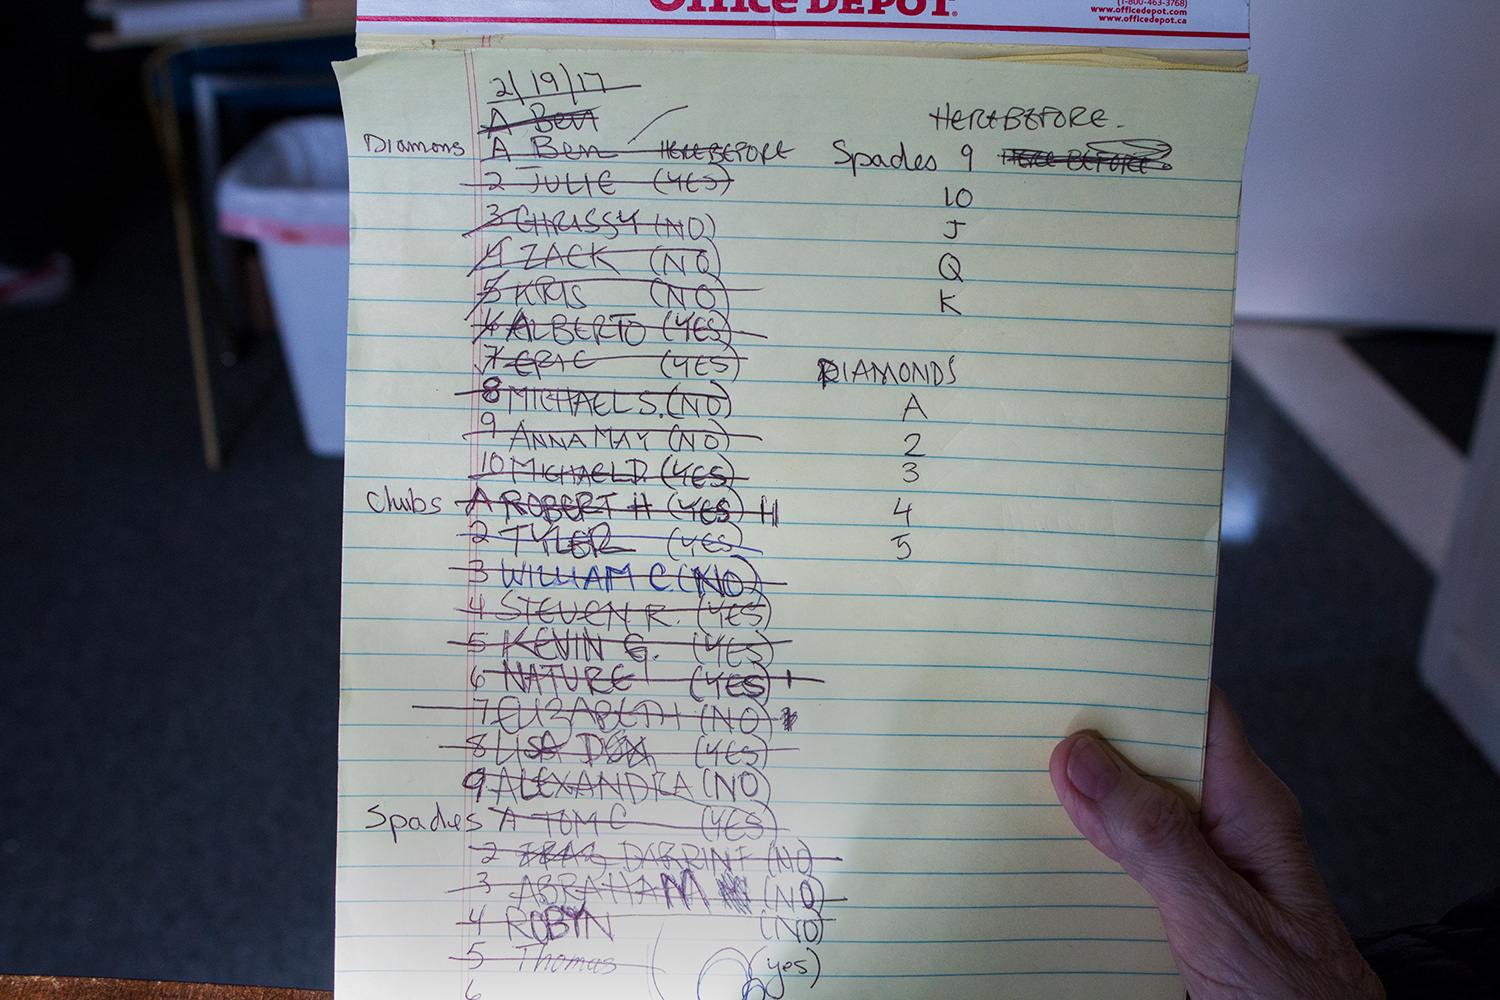 Office DEPOT
(1-800-463-3768)
www.officedepot.com
www.officedepot.ca
2/19/17
A Ben
Diamons A Ben HERE BEFORE
2 JULIE (YES)
3 CHRISSY (NO)
4 ZACK (NO)
5 KRIS (NO)
6 ALBERTO (YES)
7 ERIC (YES)
8 MICHAEL S. (NO)
9 ANNA MAY (NO)
10 MICHAEL D (YES)
Clubs A ROBERT H (YES)
2 TYLER (YES)
3 WILLIAM C. (NO)
4 STEVEN R. (YES)
5 KEVIN G. (YES)
6 NATURE (YES)
7 ELIZABETH (NO)
8 LISA (YES)
9 ALEXANDRA (NO)
Spades A TOM C (YES)
2 DARRIN F (NO)
3 ABRAHAM (NO)
4 ROBYN (NO)
5 Thomas (yes)
6
HERE BEFORE.
Spades 9 HERE BEFORE
10
J
Q
K
DIAMONDS
A
2
3
4
5